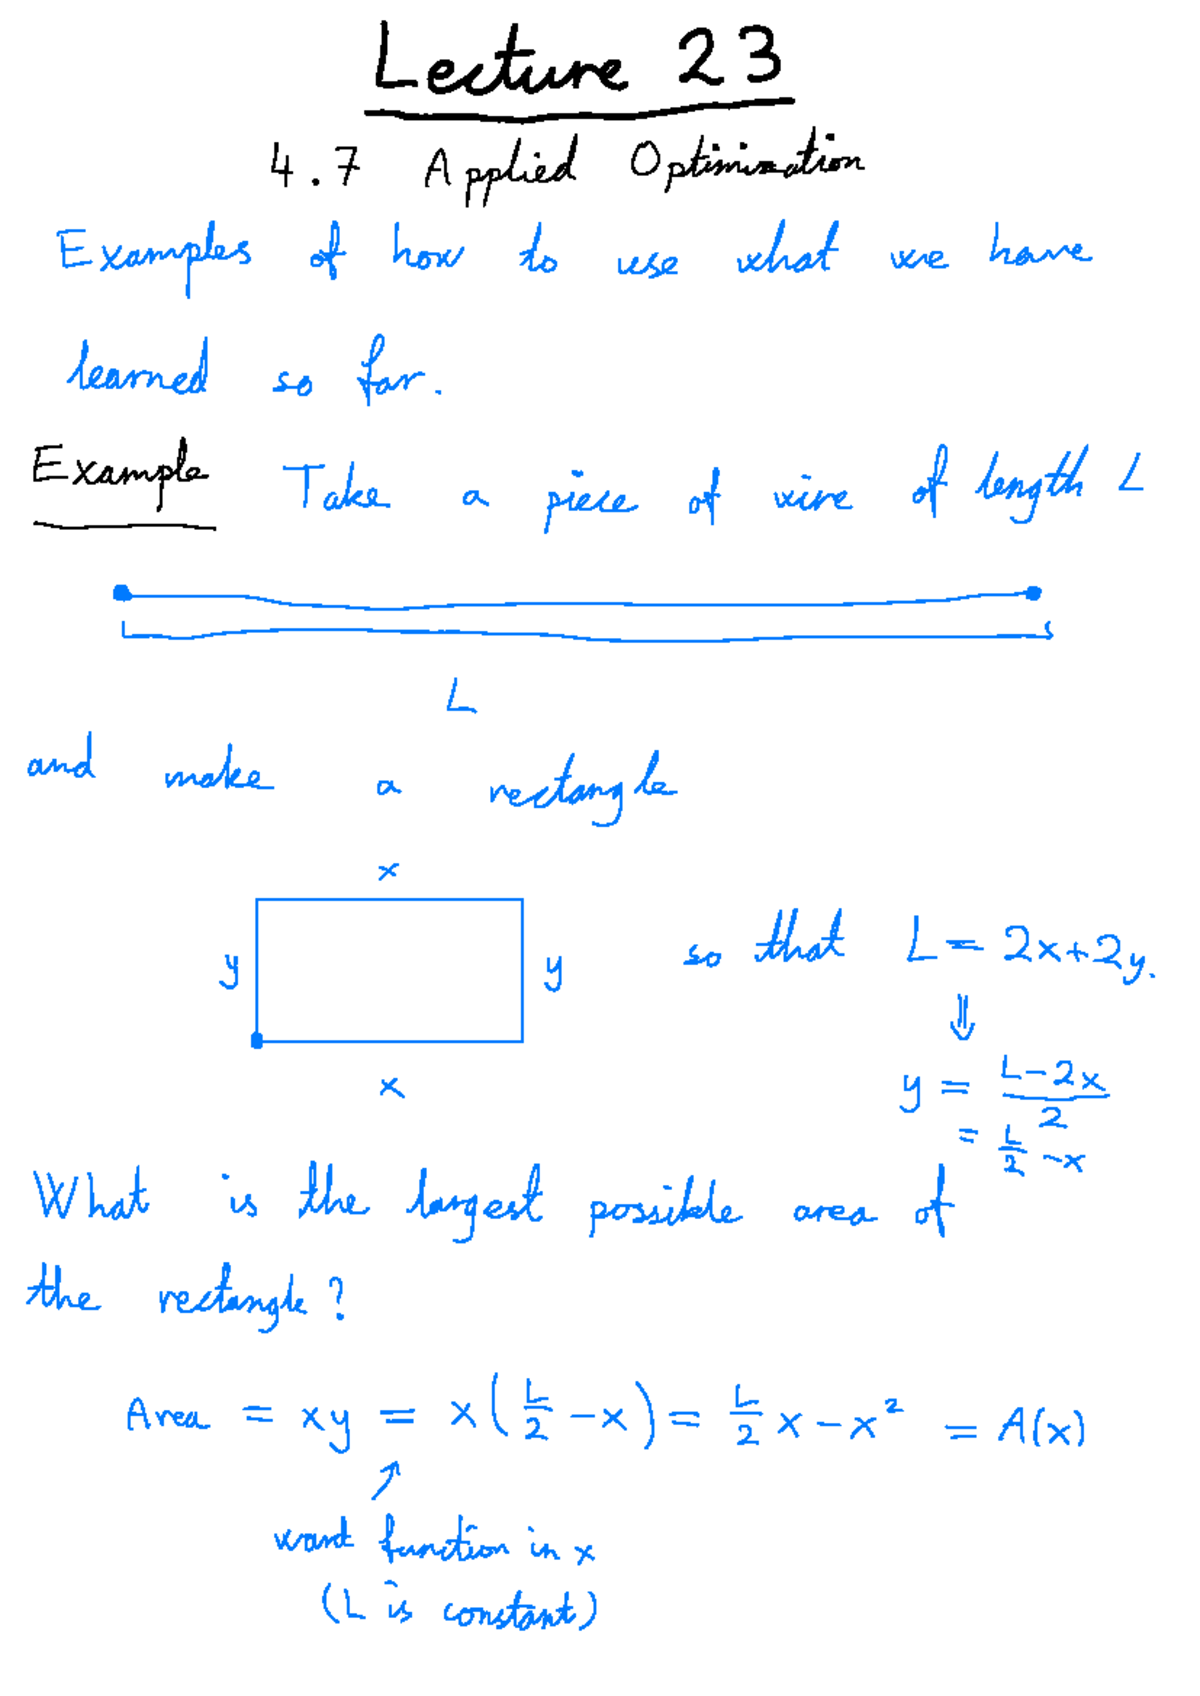 Lecture 23
4.7 Applied Optimization
Examples of how to use what we have
learned so far.
Example Take a piece of wire of length L
L
and make a rectangle
x
y y so that L = 2x+2y.
⇓
x y = \frac{L-2x}{2}
= \frac{L}{2} -x
What is the largest possible area of
the rectangle?
Area = xy = x(\frac{L}{2} -x) = \frac{L}{2} x - x² = A(x)
↗
want function in x
(L is constant)